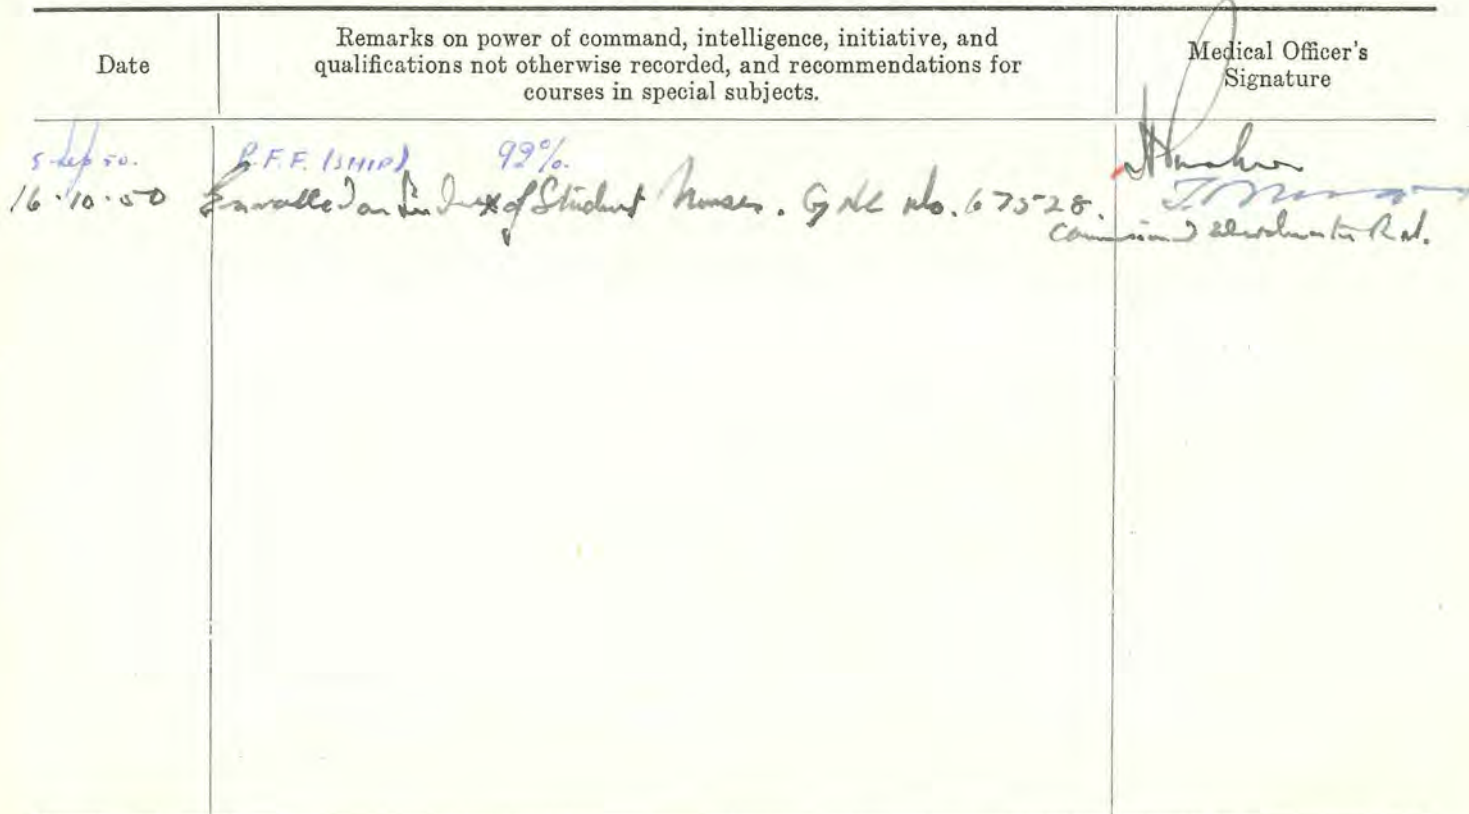 Date
Remarks on power of command, intelligence, initiative, and
qualifications not otherwise recorded, and recommendations for
courses in special subjects.
Medical Officer's
Signature
5 Sep 50. P.F.F. (SHIP) 92%.
16.10.50 Enrolled on Index of Student Nurses. GNC No. 67528.
Commissioned Wardmaster R.N.